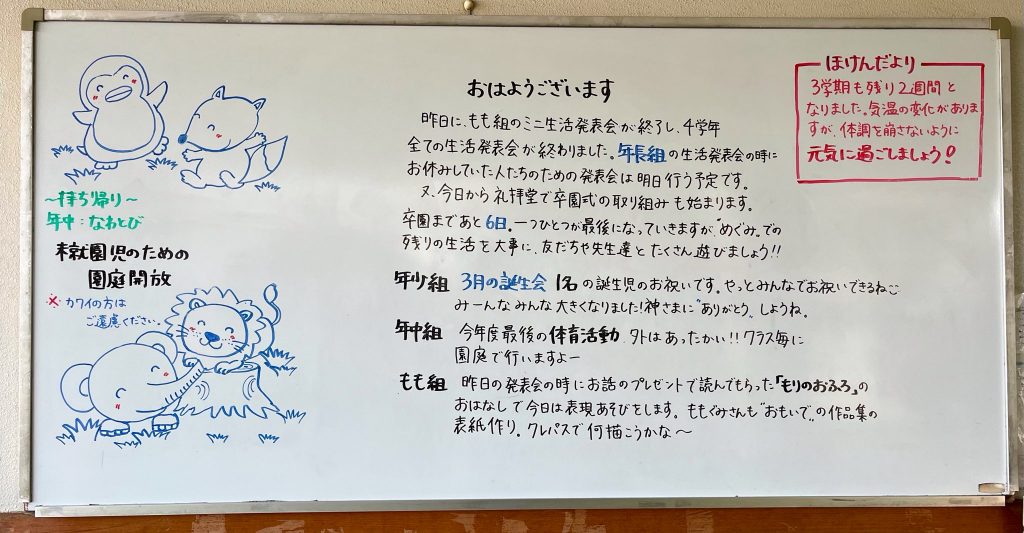 おはようございます
昨日に、もも組のミニ生活発表会が終了し、4学年
全ての生活発表会が終わりました。年長組の生活発表会の時に
お休みしていた人たちのための発表会は明日行う予定です。
又、今日から礼拝堂で卒園式の取り組みも始まります。
卒園まであと6日。一つひとつが最後になっていきますが、"めぐみ"での
残りの生活を大事に、友だちや先生達とたくさん遊びましょう!!
年少組 3月の誕生会 1名の誕生児のお祝いです。やっとみんなでお祝いできるね
みーんなみんな大きくなりました!神さまに"ありがとう"しようね。
年中組 今年度最後の体育活動。外はあったかい!!クラス毎に
園庭で行いますよー
もも組 昨日の発表会の時にお話のプレゼントで読んでもらった「もりのおふろ」の
おはなしで今日は表現あそびをします。ももぐみさんも"おもいで"の作品集の
表紙作り。クレパスで何描こうかな〜
ほけんだより
3学期も残り2週間と
なりました。気温の変化がありま
すが、体調を崩さないように
元気に過ごしましょう!
〜持ち帰り〜
年中:なわとび
未就園児のための
園庭開放
※カワイの方は
ご遠慮ください。